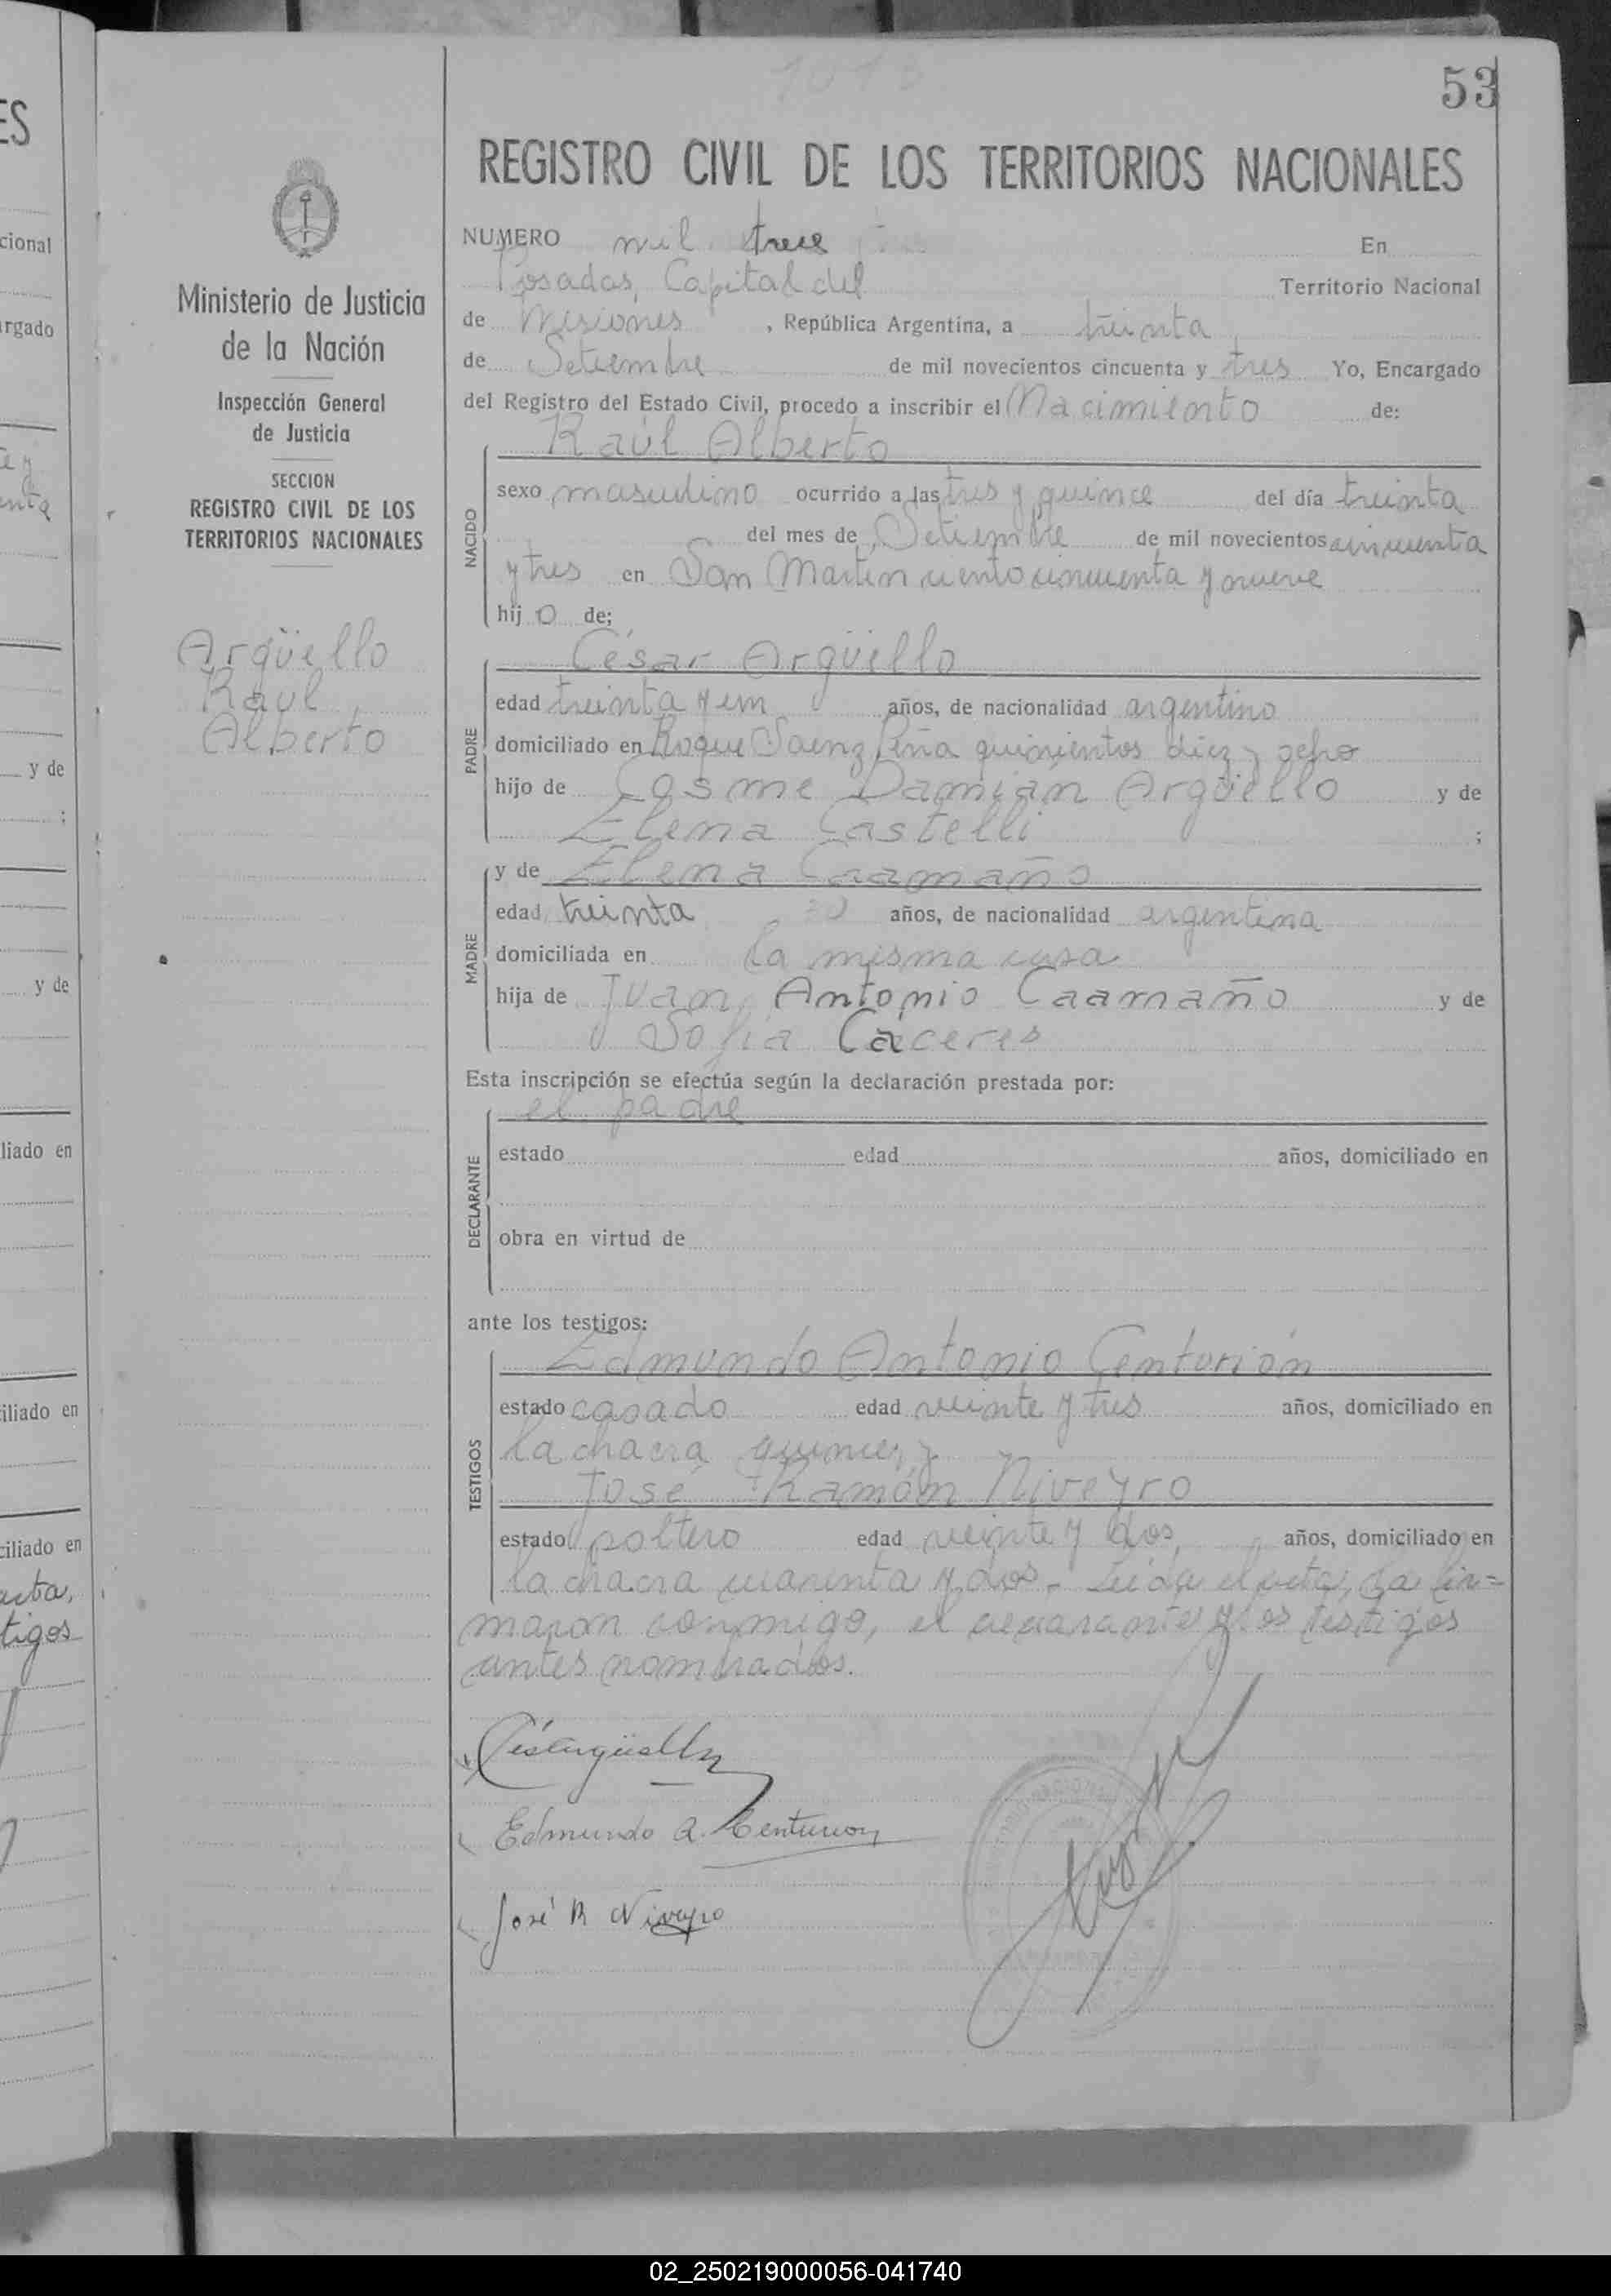 1013
53
REGISTRO CIVIL DE LOS TERRITORIOS NACIONALES
NUMERO mil trece En
Posadas, Capital del Territorio Nacional
de Misiones, República Argentina, a treinta
de Setiembre de mil novecientos cincuenta y tres Yo, Encargado
del Registro del Estado Civil, procedo a inscribir el Nacimiento de:
Raúl Alberto
NACIDO
sexo masculino ocurrido a las tres y quince del día treinta
del mes de Setiembre de mil novecientos cincuenta
y tres en San Martin ciento cincuenta y nueve
hijo de;
César Argüello
PADRE
edad treinta y un años, de nacionalidad argentino
domiciliado en Roque Saenz Peña quinientos diez y ocho
hijo de Cosme Damián Argüello y de
Elena Castelli ;
y de Elena Caamaño
MADRE
edad treinta 30 años, de nacionalidad argentina
domiciliada en la misma casa
hija de Juan Antonio Caamaño y de
Sofía Cáceres
Esta inscripción se efectúa según la declaración prestada por:
el padre
DECLARANTE
estado edad años, domiciliado en
obra en virtud de
ante los testigos:
Edmundo Antonio Centurión
TESTIGOS
estado casado edad veinte y tres años, domiciliado en
la chacra quince, y
José Ramón Niveyro
estado soltero edad veinte y dos, años, domiciliado en
la chacra cuarenta y dos.- Leída el acta, la fir=
maron conmigo, el declarante y los testigos
antes nombrados.
César Argüello
Edmundo A. Centurion
José R Niveyro
Ministerio de Justicia
de la Nación
Inspección General
de Justicia
SECCION
REGISTRO CIVIL DE LOS
TERRITORIOS NACIONALES
Argüello
Raúl
Alberto
ES
cional
rgado
y de
;
y de
liado en
iliado en
ciliado en
tigos
02_250219000056-041740